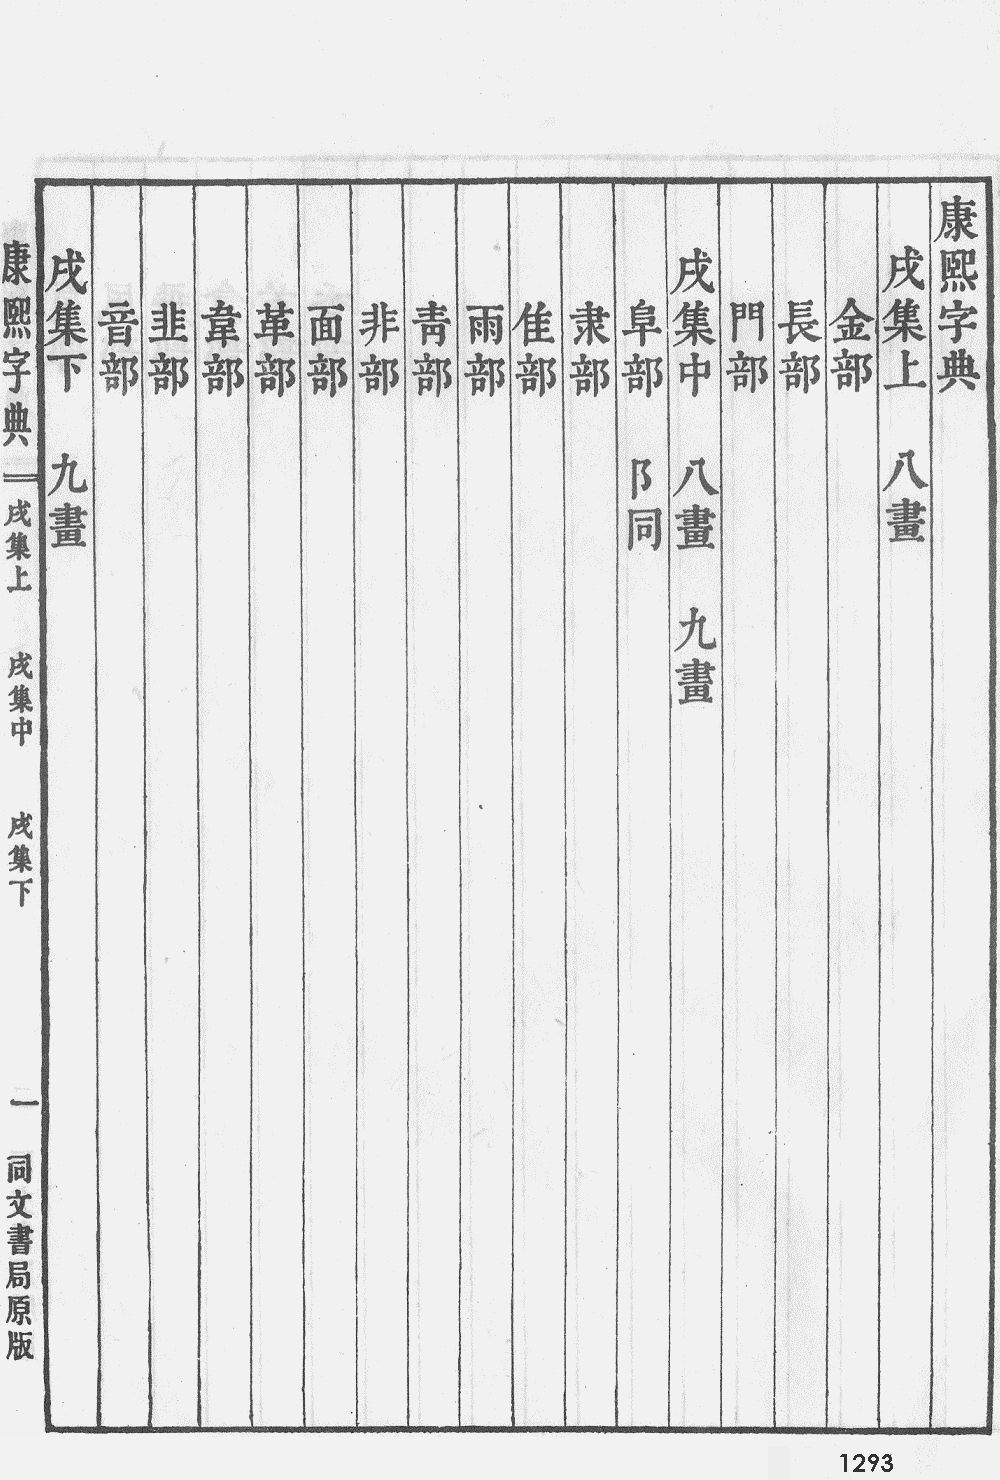 康熙字典
戌集上 八畫
金部
長部
門部
戌集中 八畫 九畫
阜部 阝同
隶部
隹部
雨部
靑部
非部
面部
革部
韋部
韭部
音部
戌集下 九畫
康熙字典 戌集上 戌集中 戌集下 一 同文書局原版
1293